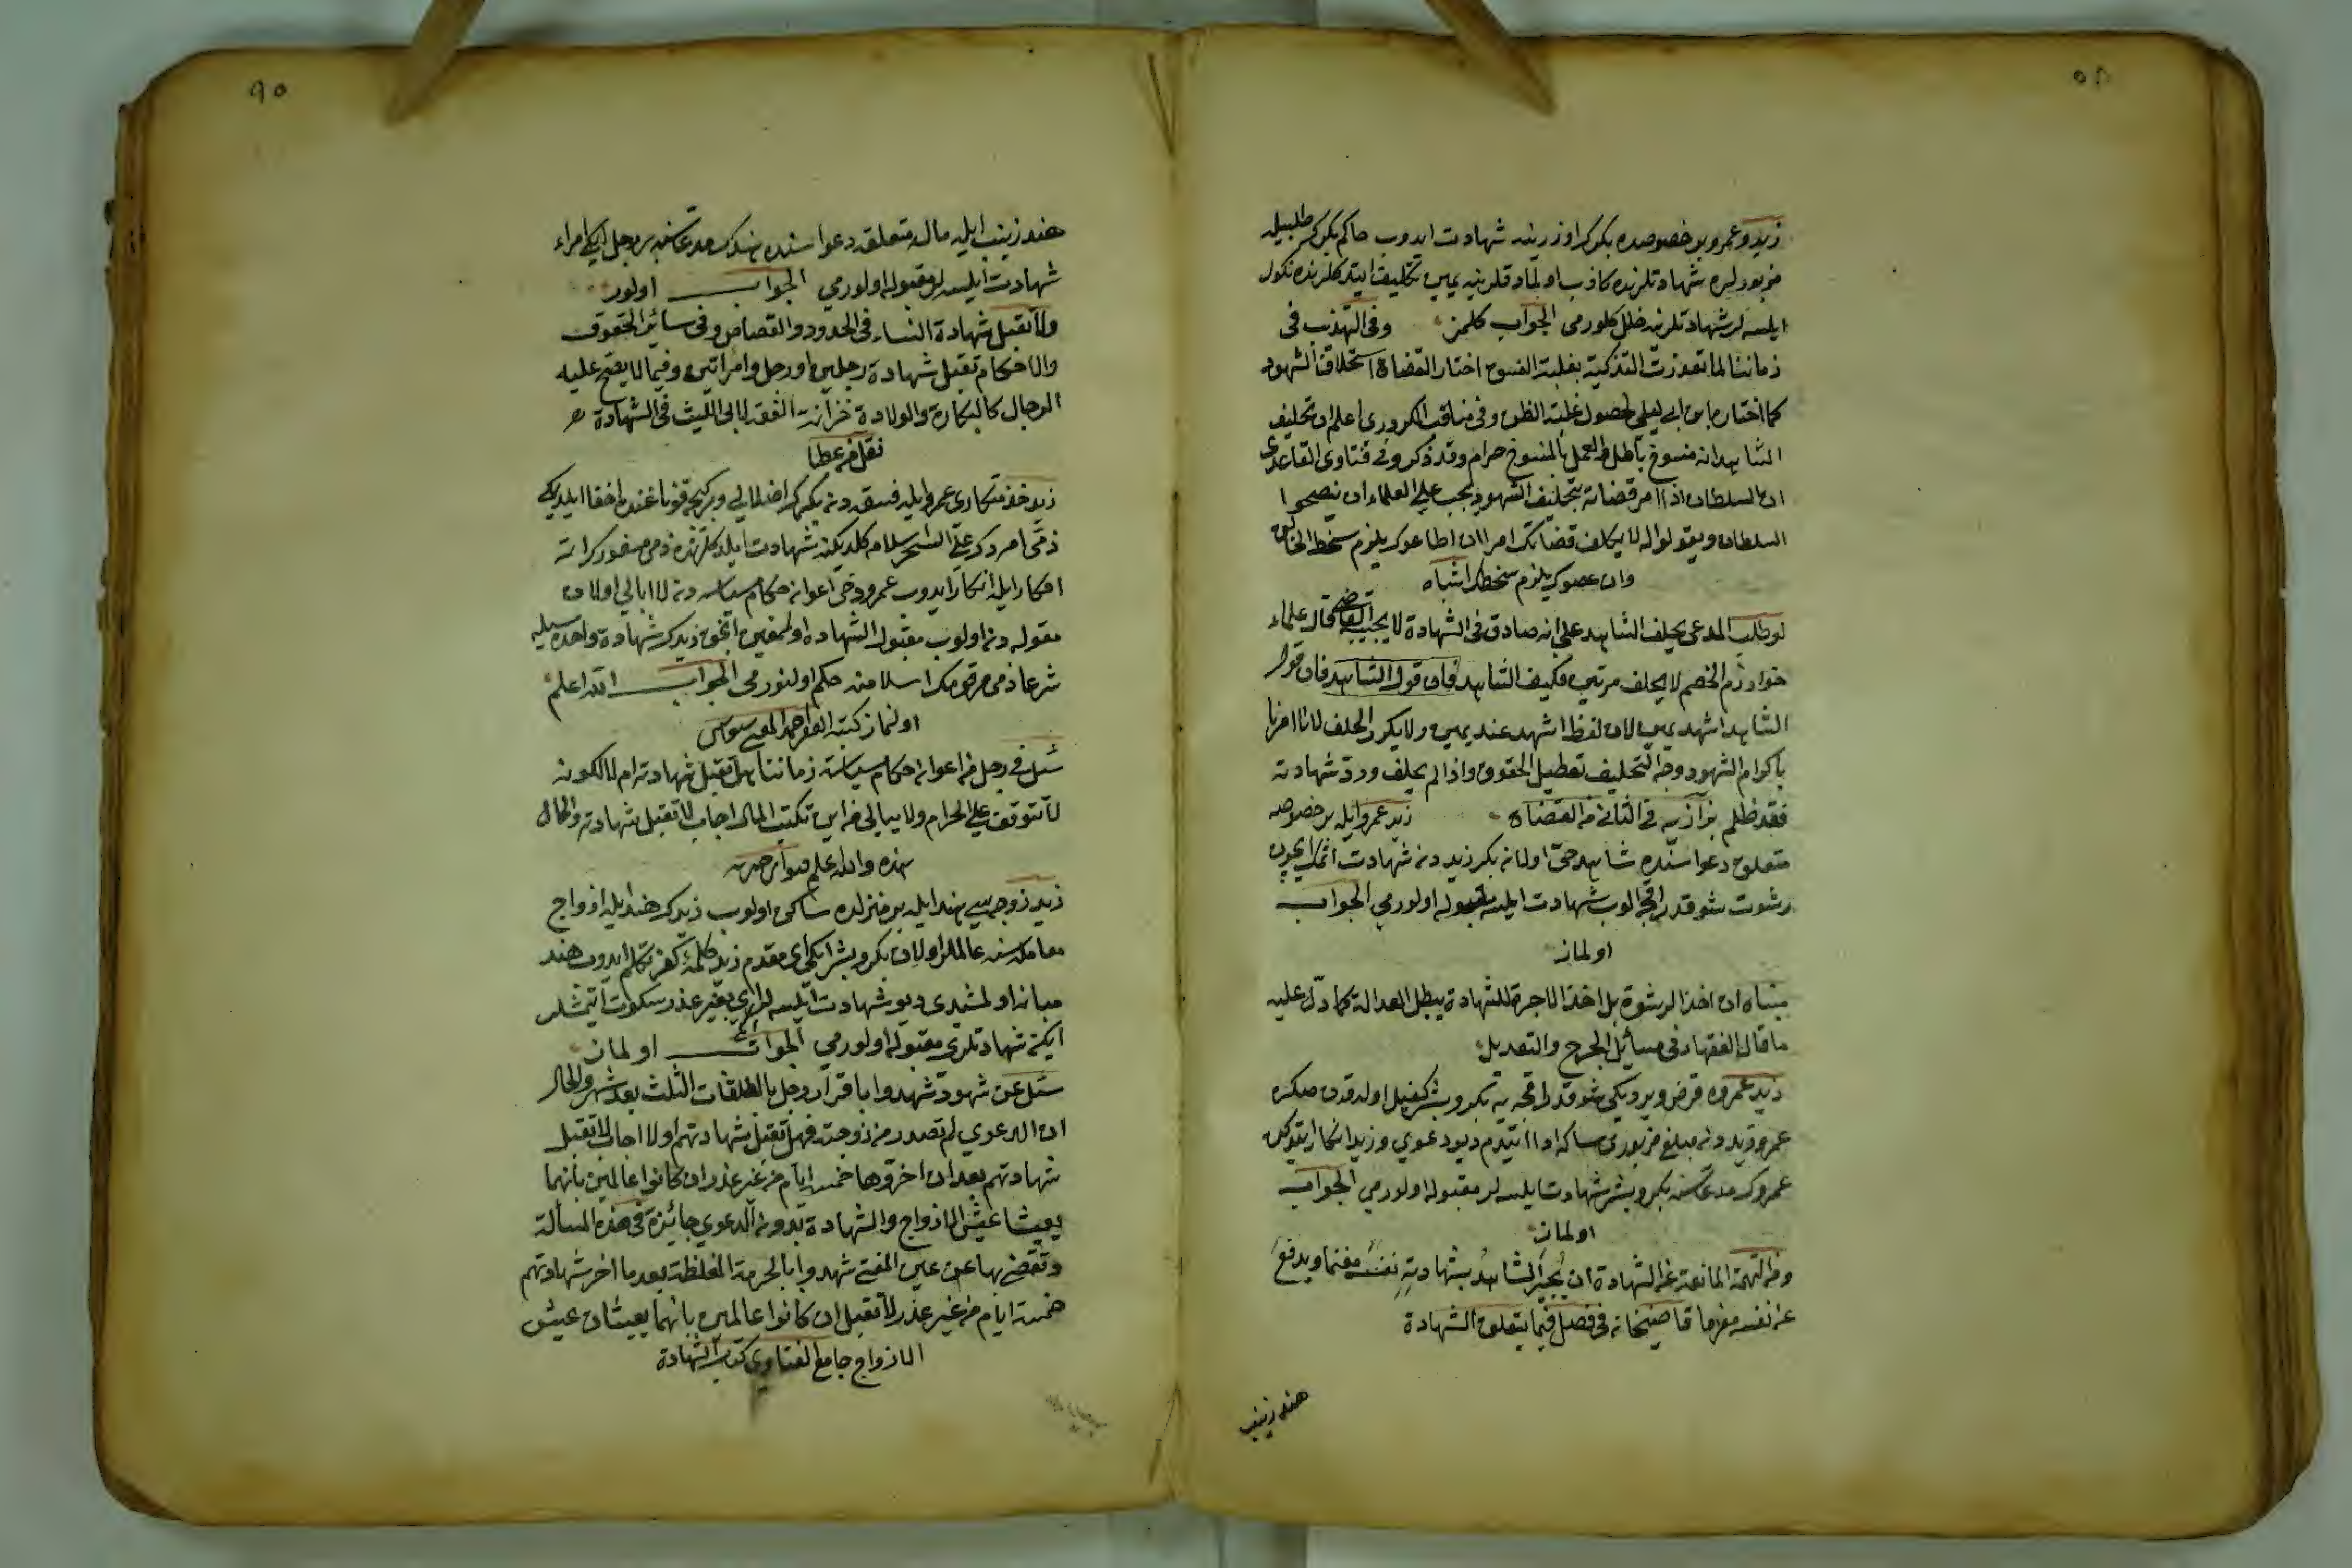 زيد وعمرو بر خصوصده بكرك اوزرينه شهادت ايدوب حاكم بكرك طلبيله
مزبورلره شهادتلرنده كاذب اولمادقلرينه يمين تكليف ايتدكلرنده نكول
ايلسه لر شهادتلرينه خلل كلورمى الجواب كلمز وفى التهذيب فى
زماننا لما تعذرت التزكية بغلبة الفسوق اختار القضاة استحلاف الشهود
كما اختاره ابن ابى ليلى لحصول غلبة الظن وفى مناقب الكرورى اعلم ان تحليف
الشاهد انه منسوخ باطل والعمل بالمنسوخ حرام وقد ذكر وفى فتاوى القاعدى
ان السلطان اذا امر قضاته بتحليف الشهود يجب على العلماء ان ينصحوا
السلطان ويقولوا له لا يكلف قضاتك امرا ان اطاعوك يلزم سخط الخالق
وان عصوك يلزم سخطك اشباه
لو طلب المدعى يحلف الشاهد على انه صادق فى الشهادة لا يجيبه القاضى قال علماء
خوارزم الخصم لا يحلف مرتين فكيف الشاهد فان قول الشاهد فان قول
الشاهد اشهد يمين لان لفظ اشهد عند يمين ولا يكرر الحلف لانا امرنا
باكرام الشهود وجه التحليف تعطيل الحقوق واذا لم يحلف ورد شهادته
فقد ظلم بزازيه فى الثانى من القضاة زيد عمرو ايله بر خصوصه
متعلق دعواسنده شاهد حق اولانه بكر زيددن شهادت اتمك ايچون
رشوت شو قدر اقچه الوب شهادت ايلسه مقبوله اولورمى الجواب
اولماز
مبناه ان اخذ الرشوة بل اخذ الاجرة للشهادة يبطل العدالة كما دل عليه
ما قال الفقهاء فى مسائل الجرح والتعديل
زيد عمروه قرض ويرديكى شو قدر اقچه يه بكر وبشر كفيل اولدقدن صكره
عمرو زيددن مبلغ مزبورى ساكه ادا ايتدم ديو دعوى وزيد انكار ايتدكده
عمروك مدعاسنه بكر وبشر شهادت ايلسه لر مقبوله اولورمى الجواب
اولماز
ومن التهمة المانعة من الشهادة ان يجر الشاهد بشهادته نفسه مغنما ويدفع
عن نفسه مغرما قاضيخان فى فصل فيما يتعلق الشهادة
هند زينب
٩٥
هند زينب ايله ماله متعلق دعواسنده هندك مدعاسنه بر رجل ايكى امراه
شهادت ايلسه لر مقبوله اولورمى الجواب اولور
ولا تقبل شهادة النساء فى الحدود والقصاص وفى سائر الحقوق
والاحكام تقبل شهادة رجلين او رجل وامراتين وفيما لا يطلع عليه
الرجال كالبكارة والولادة خزانة الفقه لابى الليث فى الشهادة
نقل من عطا
ذمى امردك على السحر سلامه كلديكنه شهادت ايلدكلرنده ذمى مسفور كرامته
افكار ايله انكار ايدوب عمرو دخى اعوانه حكام سياسه دن لا ابالى اولان
مقوله دن اولوب مقبول الشهادة اولمغين انجق زيدك شهادة واحده سيله
شرعا ذمى مرقومك اسلامنه حكم اولنورمى الجواب الله اعلم
اولنماز كتبه الفقير احمد المفتى بسيواس
سئل فى رجل من اعوان حكام سياسة زماننا هل تقبل شهادته ام لا لكونه
لا يتوقف على الحرام ولا يبالى من اين تكتب المال اجاب لا تقبل شهادته والحال
هذه والله اعلم
زيد زوجه سى هند ايله بر منزلده ساكن اولوب زيدك هند ايله ازواج
معامله سنه عالملر اولان بكر وبشر ايكى اى مقدم زيد كلمه كفر تكلم ايدوب هند
مبانه اولمشيدى ديو شهادت ايلسه لر اى بغير عذر سكوت ايتمشلر
ايكن شهادتلرى مقبوله اولورمى الجواب اولماز
سئل عن شهود شهدوا باقرار رجل بالطلقات الثلث بعد شهر والحال
ان الدعوى لم تصدر من زوجته فهل تقبل شهادتهم اولا اجاب لا تقبل
شهادتهم بعد ان اخروها خمسة ايام من غير عذر ان كانوا عالمين بانهما
يعيشا عيش الازواج والشهادة بدون الدعوى جائزة فى هذه المسألة
وتقضى بها عن عين المفتى شهدوا بالحرمة المغلظة بعد ما اخر شهادتهم
خمسة ايام من غير عذر لا تقبل ان كانوا عالمين بانهما يعيشان عيش
الازواج جامع الفتاوى كتاب الشهادة